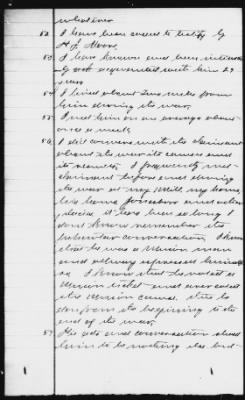 whatever
52. I have been called to testify by
H J Moore
53. I have known and been intimately
and acquainted with him 27
years
54. I lived about two miles from
him during the war.
55. I met him on an average about
once a week
56. I did converse with the claimant
about the war its causes and
its results. I frequently met
claimant before and during
the war at my Mill my home,
his home
else it has been so long I
dont know remember the
particular conversation. I know
that he was a Union man
and always expressed himself
so. I know that he voted a
Union ticket and advocated
the Union cause. this he
done from the beginning to the
end of the war.
57. His acts and conversation show
him to be nothing else but